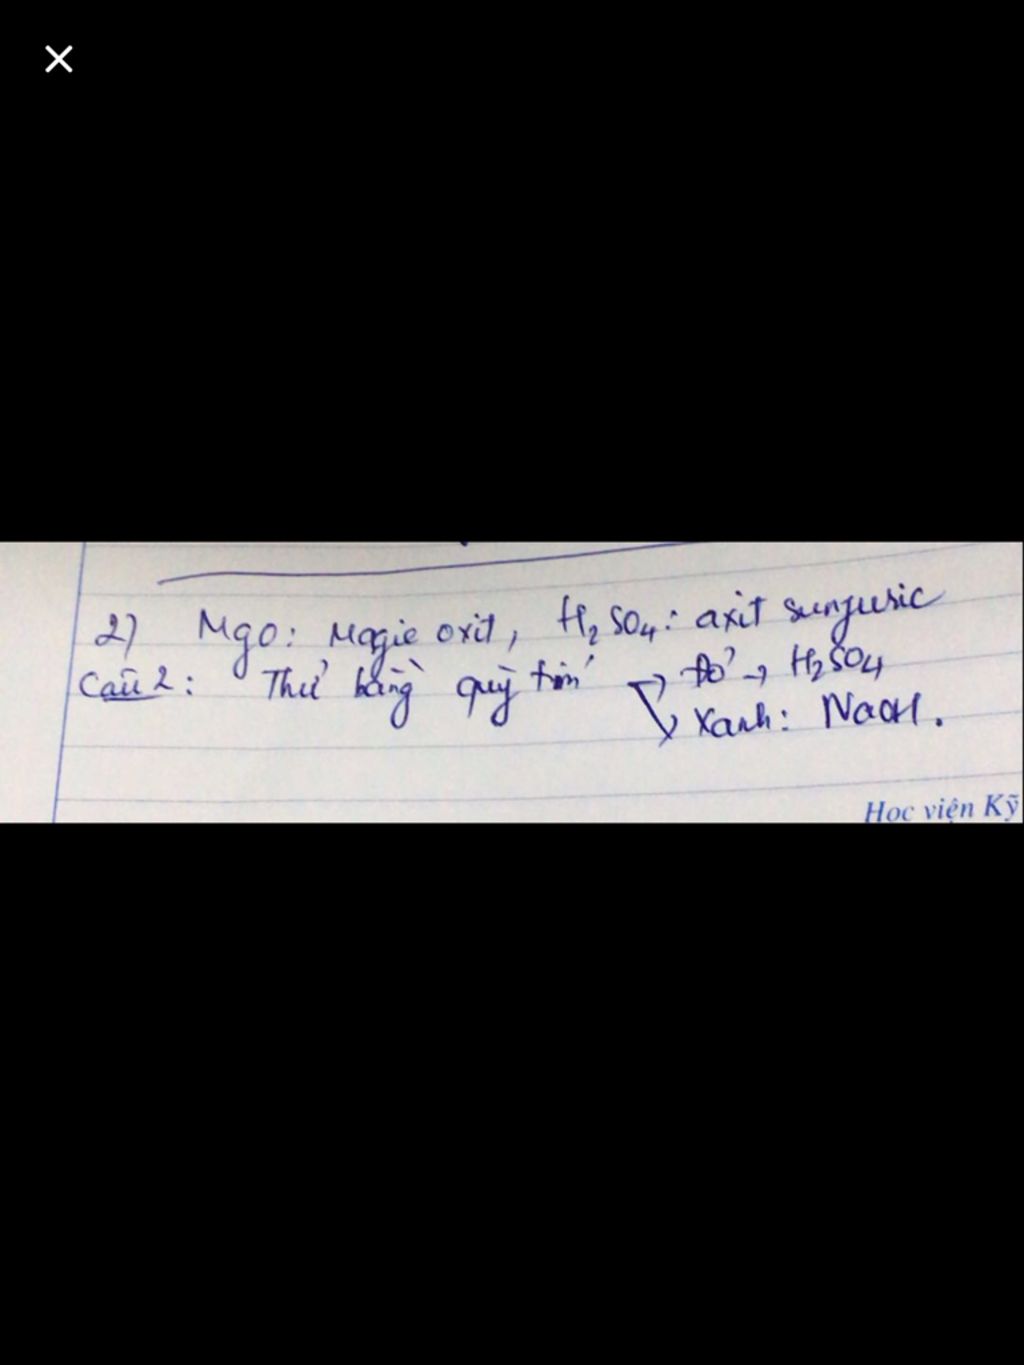 2) MgO: Magie oxit, H₂SO₄: axit sunfuric
Câu 2: Thử bằng quỳ tím → Đỏ → H₂SO₄
↘ Xanh: NaOH.
Học viện Kỹ